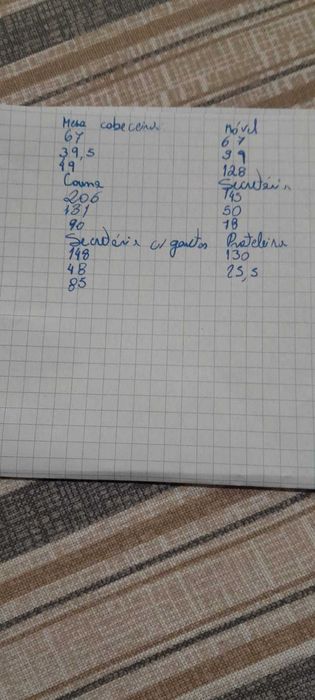 Mesa cabeceira
67
39,5
49
Cama
206
131
90
Secretária c/ gavetas
148
48
85
Móvel
67
39
128
Secretária
145
50
78
Prateleira
130
25,5